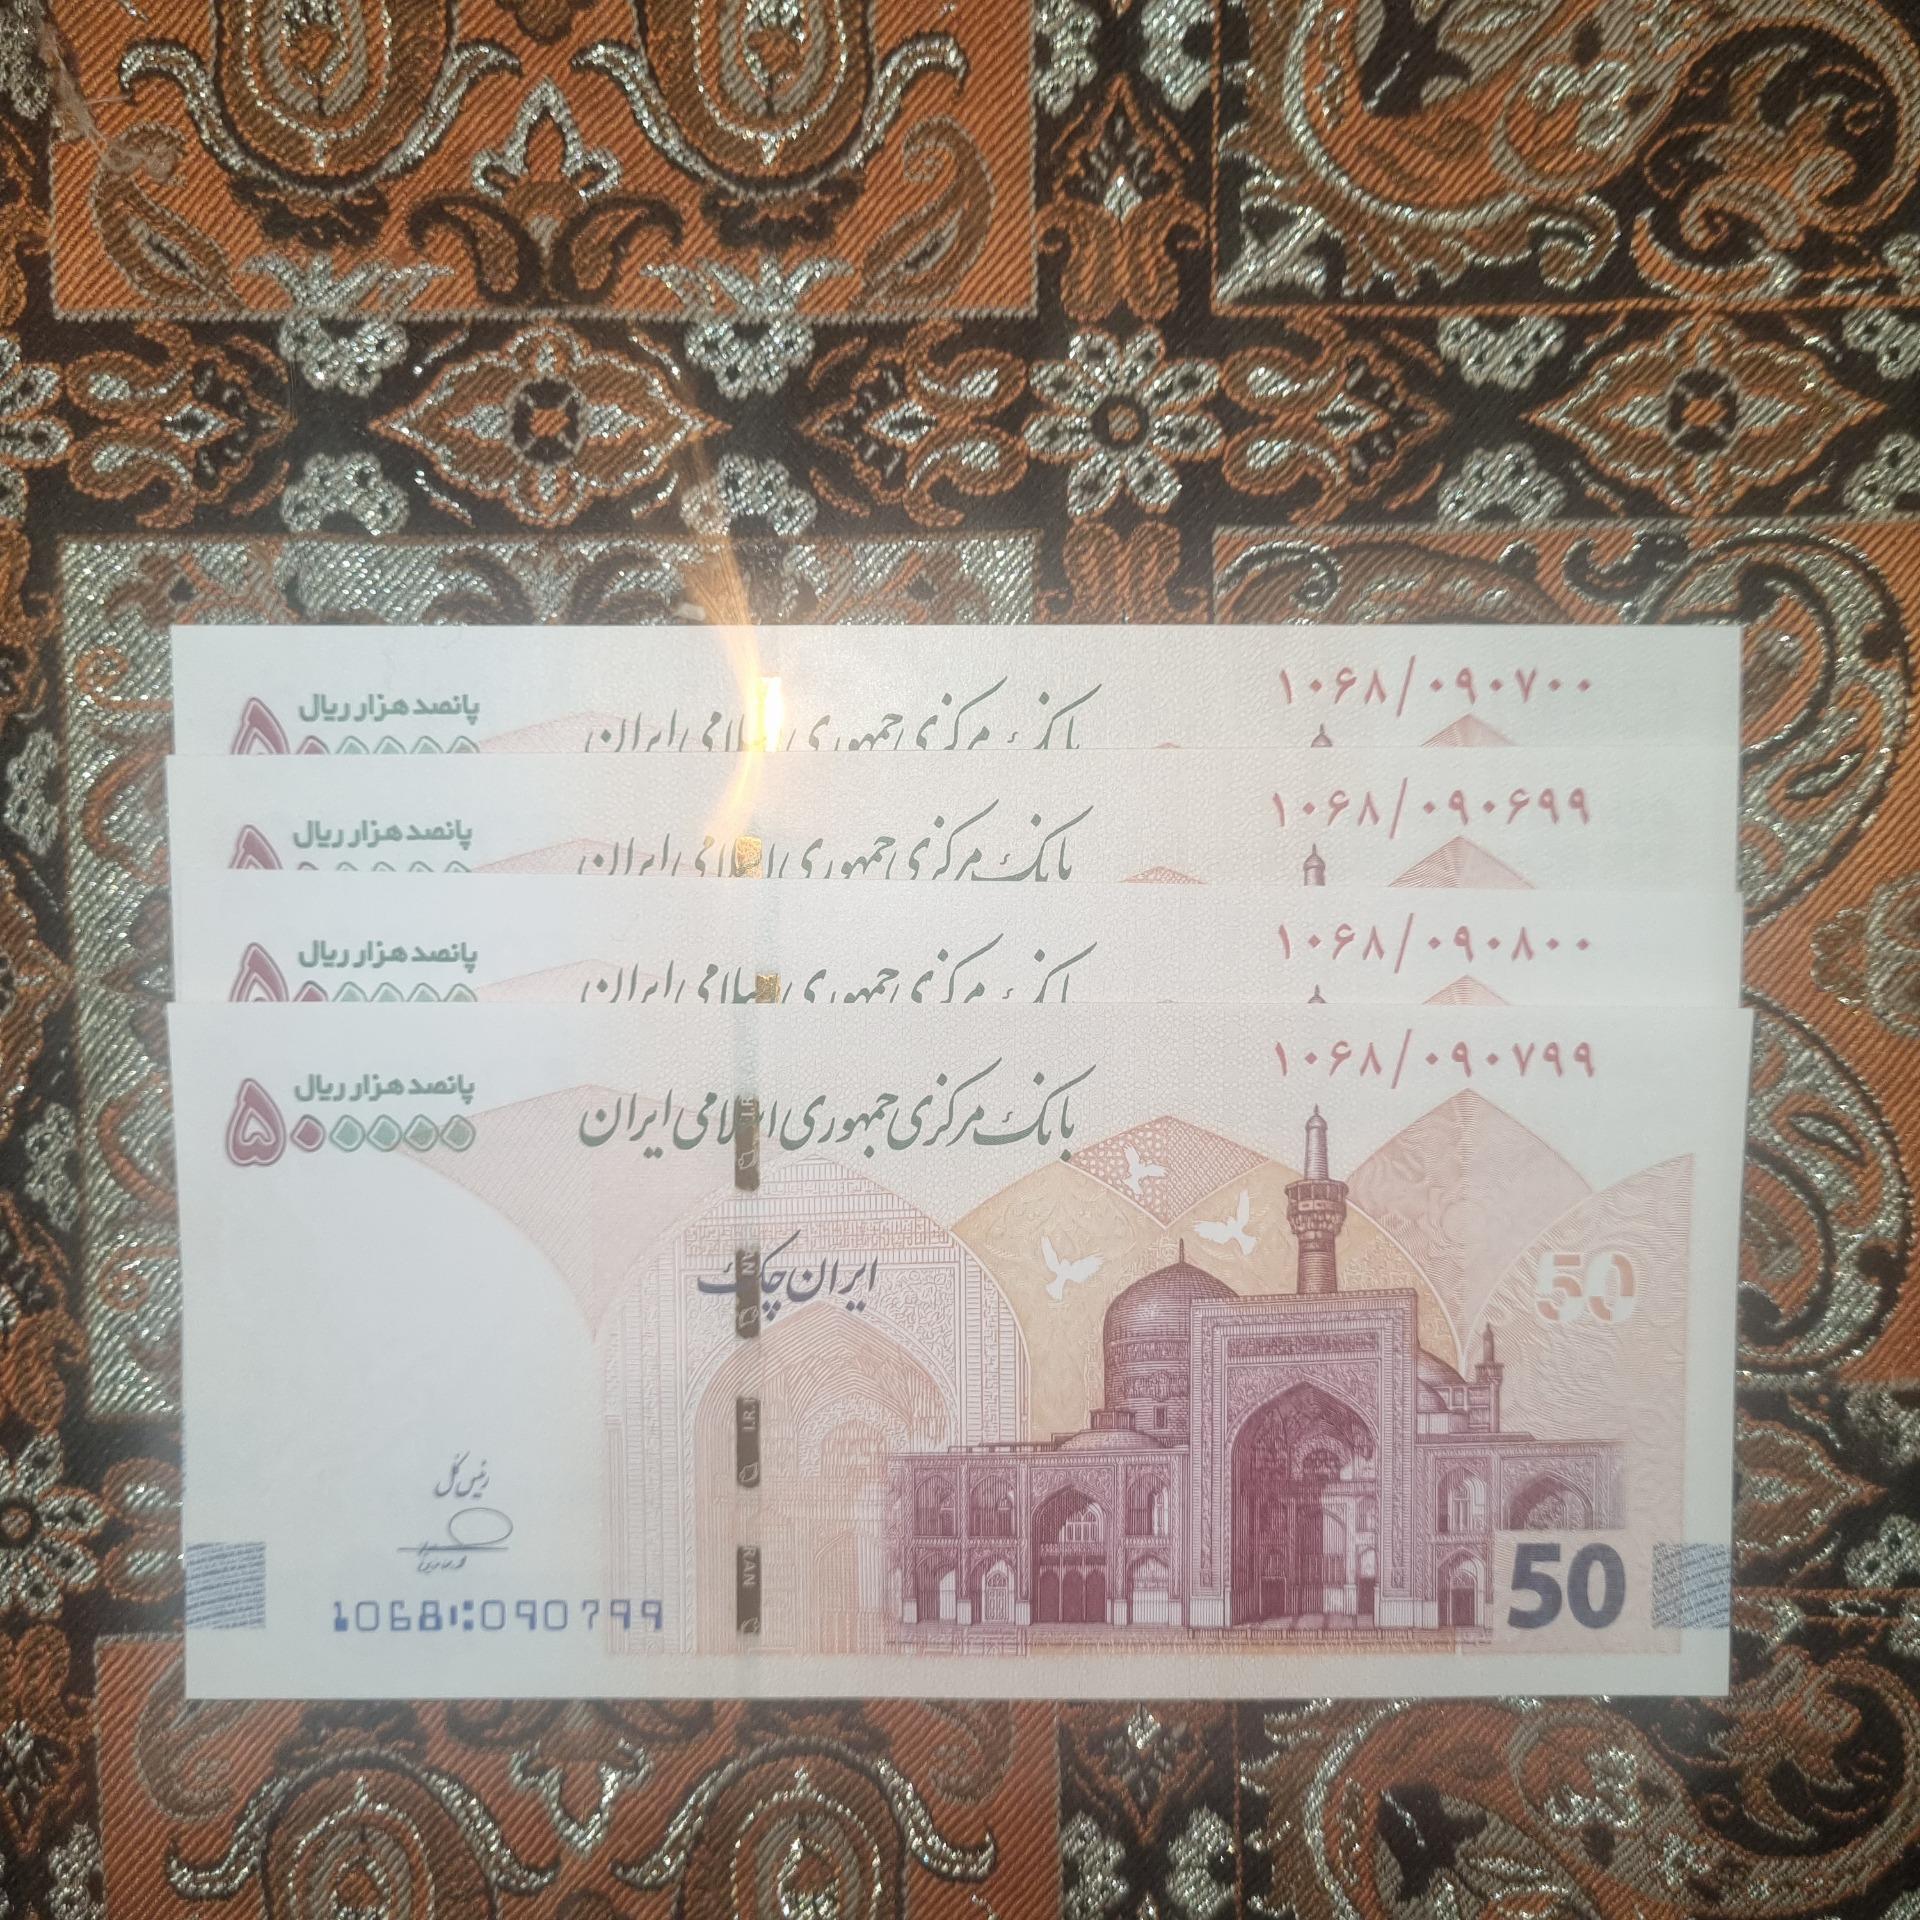 پانصد هزار ریال
بانک مرکزی جمهوری اسلامی ایران
۱۰۶۸/۰۹۰۷۰۰
۵۰۰۰۰۰
پانصد هزار ریال
بانک مرکزی جمهوری اسلامی ایران
۱۰۶۸/۰۹۰۶۹۹
۵۰۰۰۰۰
پانصد هزار ریال
بانک مرکزی جمهوری اسلامی ایران
۱۰۶۸/۰۹۰۸۰۰
۵۰۰۰۰۰
۱۰۶۸/۰۹۰۷۹۹
پانصد هزار ریال
بانک مرکزی جمهوری اسلامی ایران
۵۰۰۰۰۰
ایران چک
50
I.R.
رئیس کل
RAN
50
1068:090799